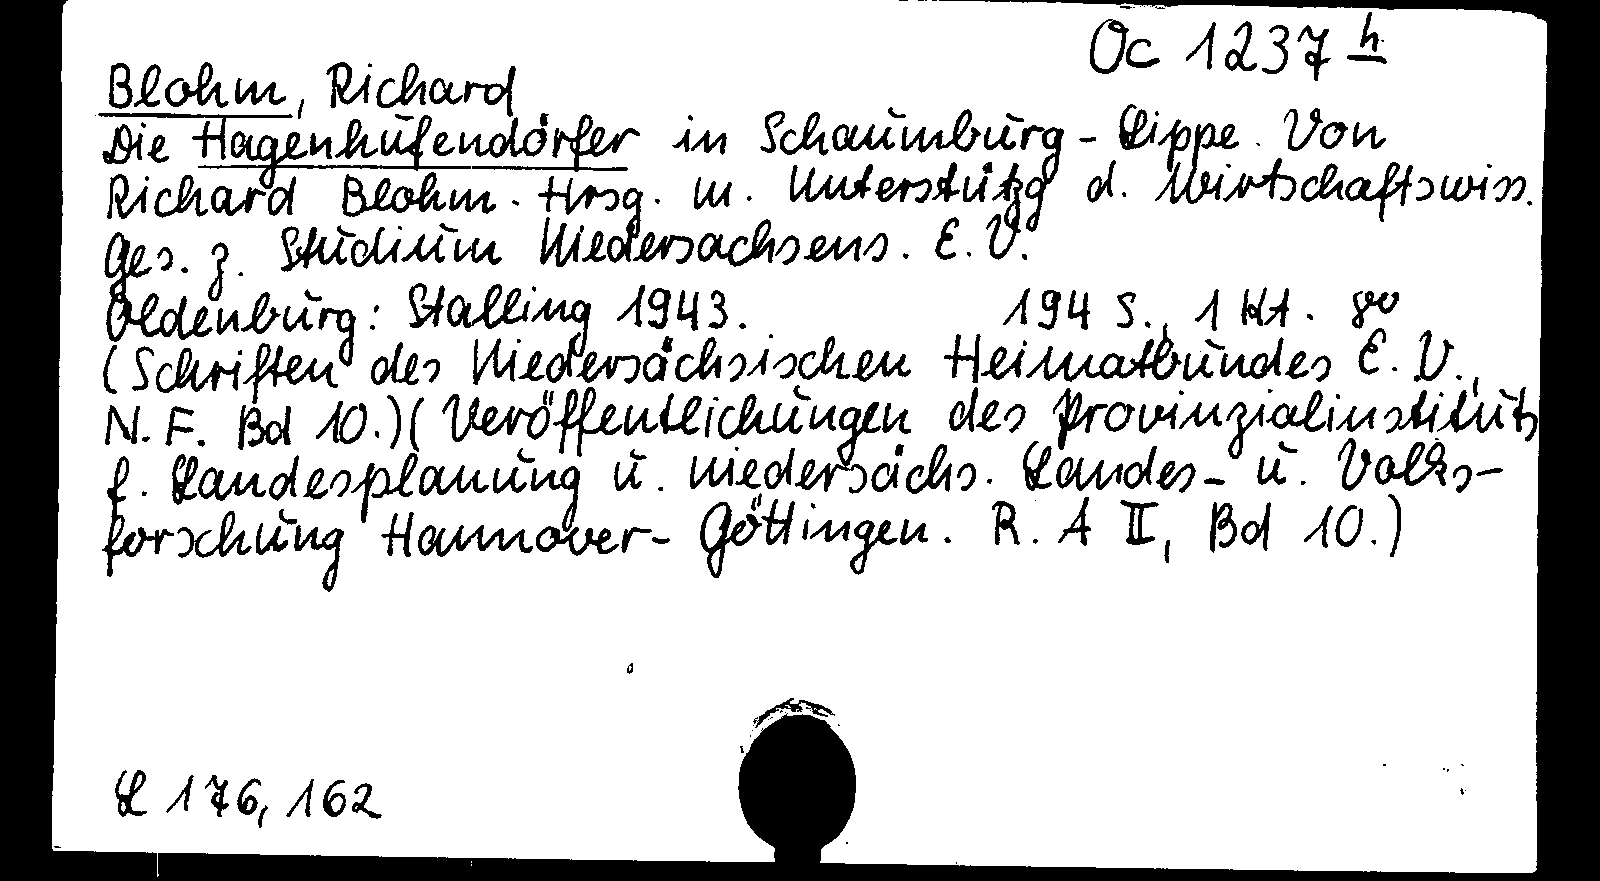 Oc 1237 h
Blohm, Richard
Die Hagenhufendörfer in Schaumburg-Lippe. Von
Richard Blohm. Hrsg. m. Unterstützg d. Wirtschaftswiss.
Ges. z. Studium Niedersachsens. E. V.
Oldenburg: Stalling 1943. 194 S., 1 Kt. 8o
(Schriften des Niedersächsischen Heimatbundes E. V.,
N. F. Bd 10.) (Veröffentlichungen des Provinzialinstituts
f. Landesplanung u. niedersächs. Landes- u. Volks-
forschung Hannover-Göttingen. R. A II, Bd 10.)
L 176, 162